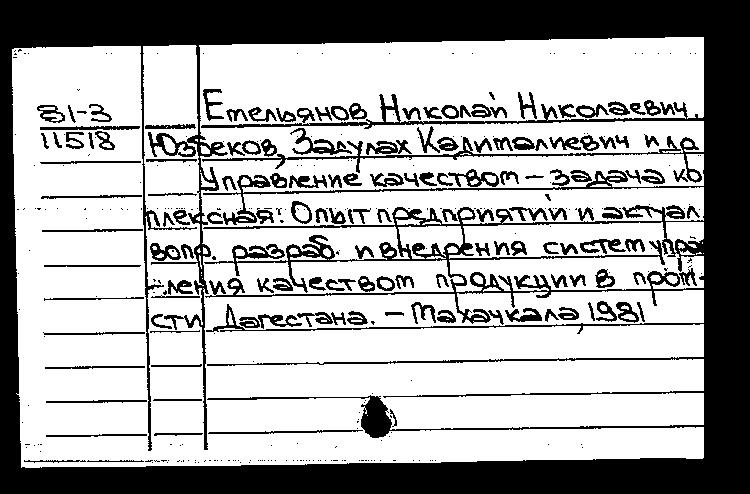 81-3
11518
Емельянов, Николай Николаевич.
Юзбеков, Задулах Кадималиевич и др
Управление качеством – задача ко
плексная: Опыт предприятий и актуал.
вопр. разраб. и внедрения систем управ
-ления качеством продукции в пром-
сти Дагестана. – Махачкала, 1981